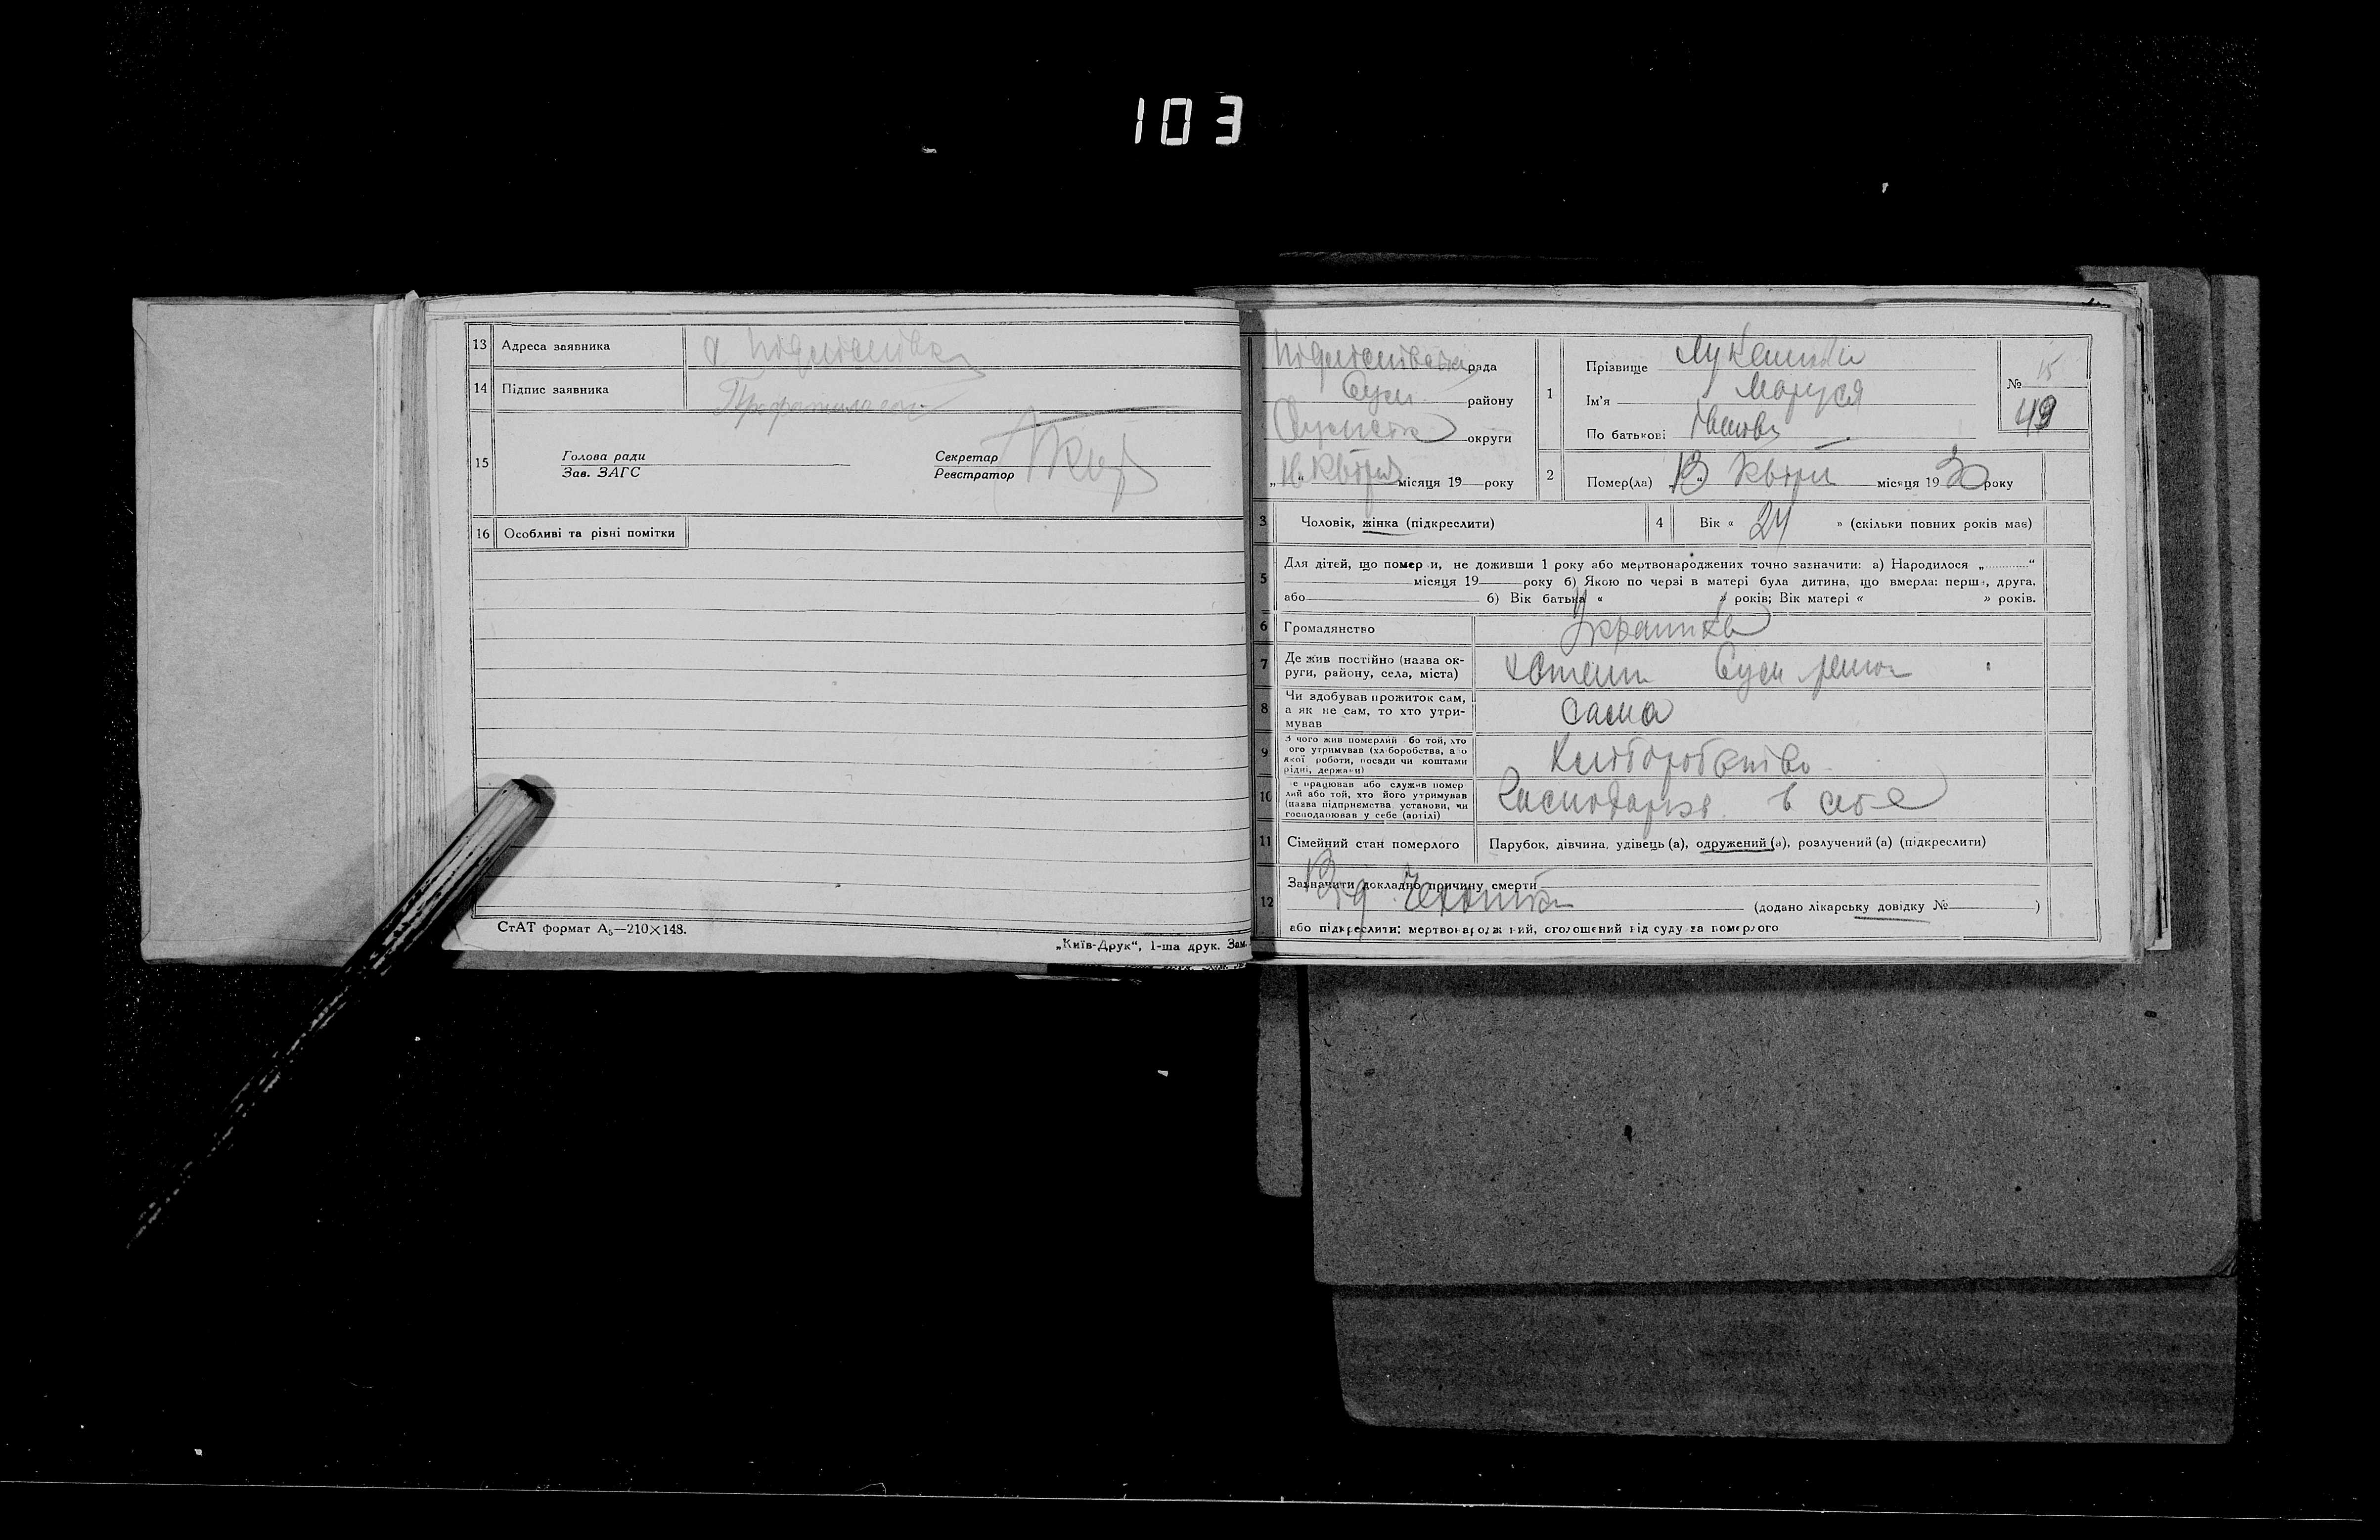 103
13 Адреса заявника
14 Підпис заявника
15 Голова ради
Зав. ЗАГС
Секретар
Реєстратор
16 Особливі та різні помітки
СтАТ формат А₅—210×148.
„Київ-Друк“, 1-ша друк. Зам.
рада
Сум району
округи
„16“ Квітня місяця 19 року
1 Прізвище
Ім'я Маруся
По батькові Іванов
№ 15
49
2 Помер(ла) 13 Квітн місяця 1930 року
3 Чоловік, жінка (підкреслити)
4 Вік « 24 » (скільки повних років має)
5 Для дітей, що померли, не доживши 1 року або мертвонароджених точно зазначити: а) Народилося „ “
місяця 19 року б) Якою по черзі в матері була дитина, що вмерла: перша, друга,
або б) Вік батька « » років; Вік матері « » років.
6 Громадянство Украинка
7 Де жив постійно (назва ок-
руги, району, села, міста)
Хотень Сум район
8 Чи здобував прожиток сам,
а як не сам, то хто утри-
мував
Сама
9 З чого жив померлий або той, хто
його утримував (хліборобства, або
якої роботи, посади чи коштами
рідні, держави)
Хліборобство
10 Де працював або служив помер
лий або той, хто його утримував
(назва підприємства установи, чи
господарював у себе (артілі)
в себе
11 Сімейний стан померлого
Парубок, дівчина, удівець (а), одружений (а), розлучений (а) (підкреслити)
12 Зазначити докладно причину смерти
Від
(додано лікарську довідку № )
або підкреслити: мертвонароджений, оголошений від суду за померлого